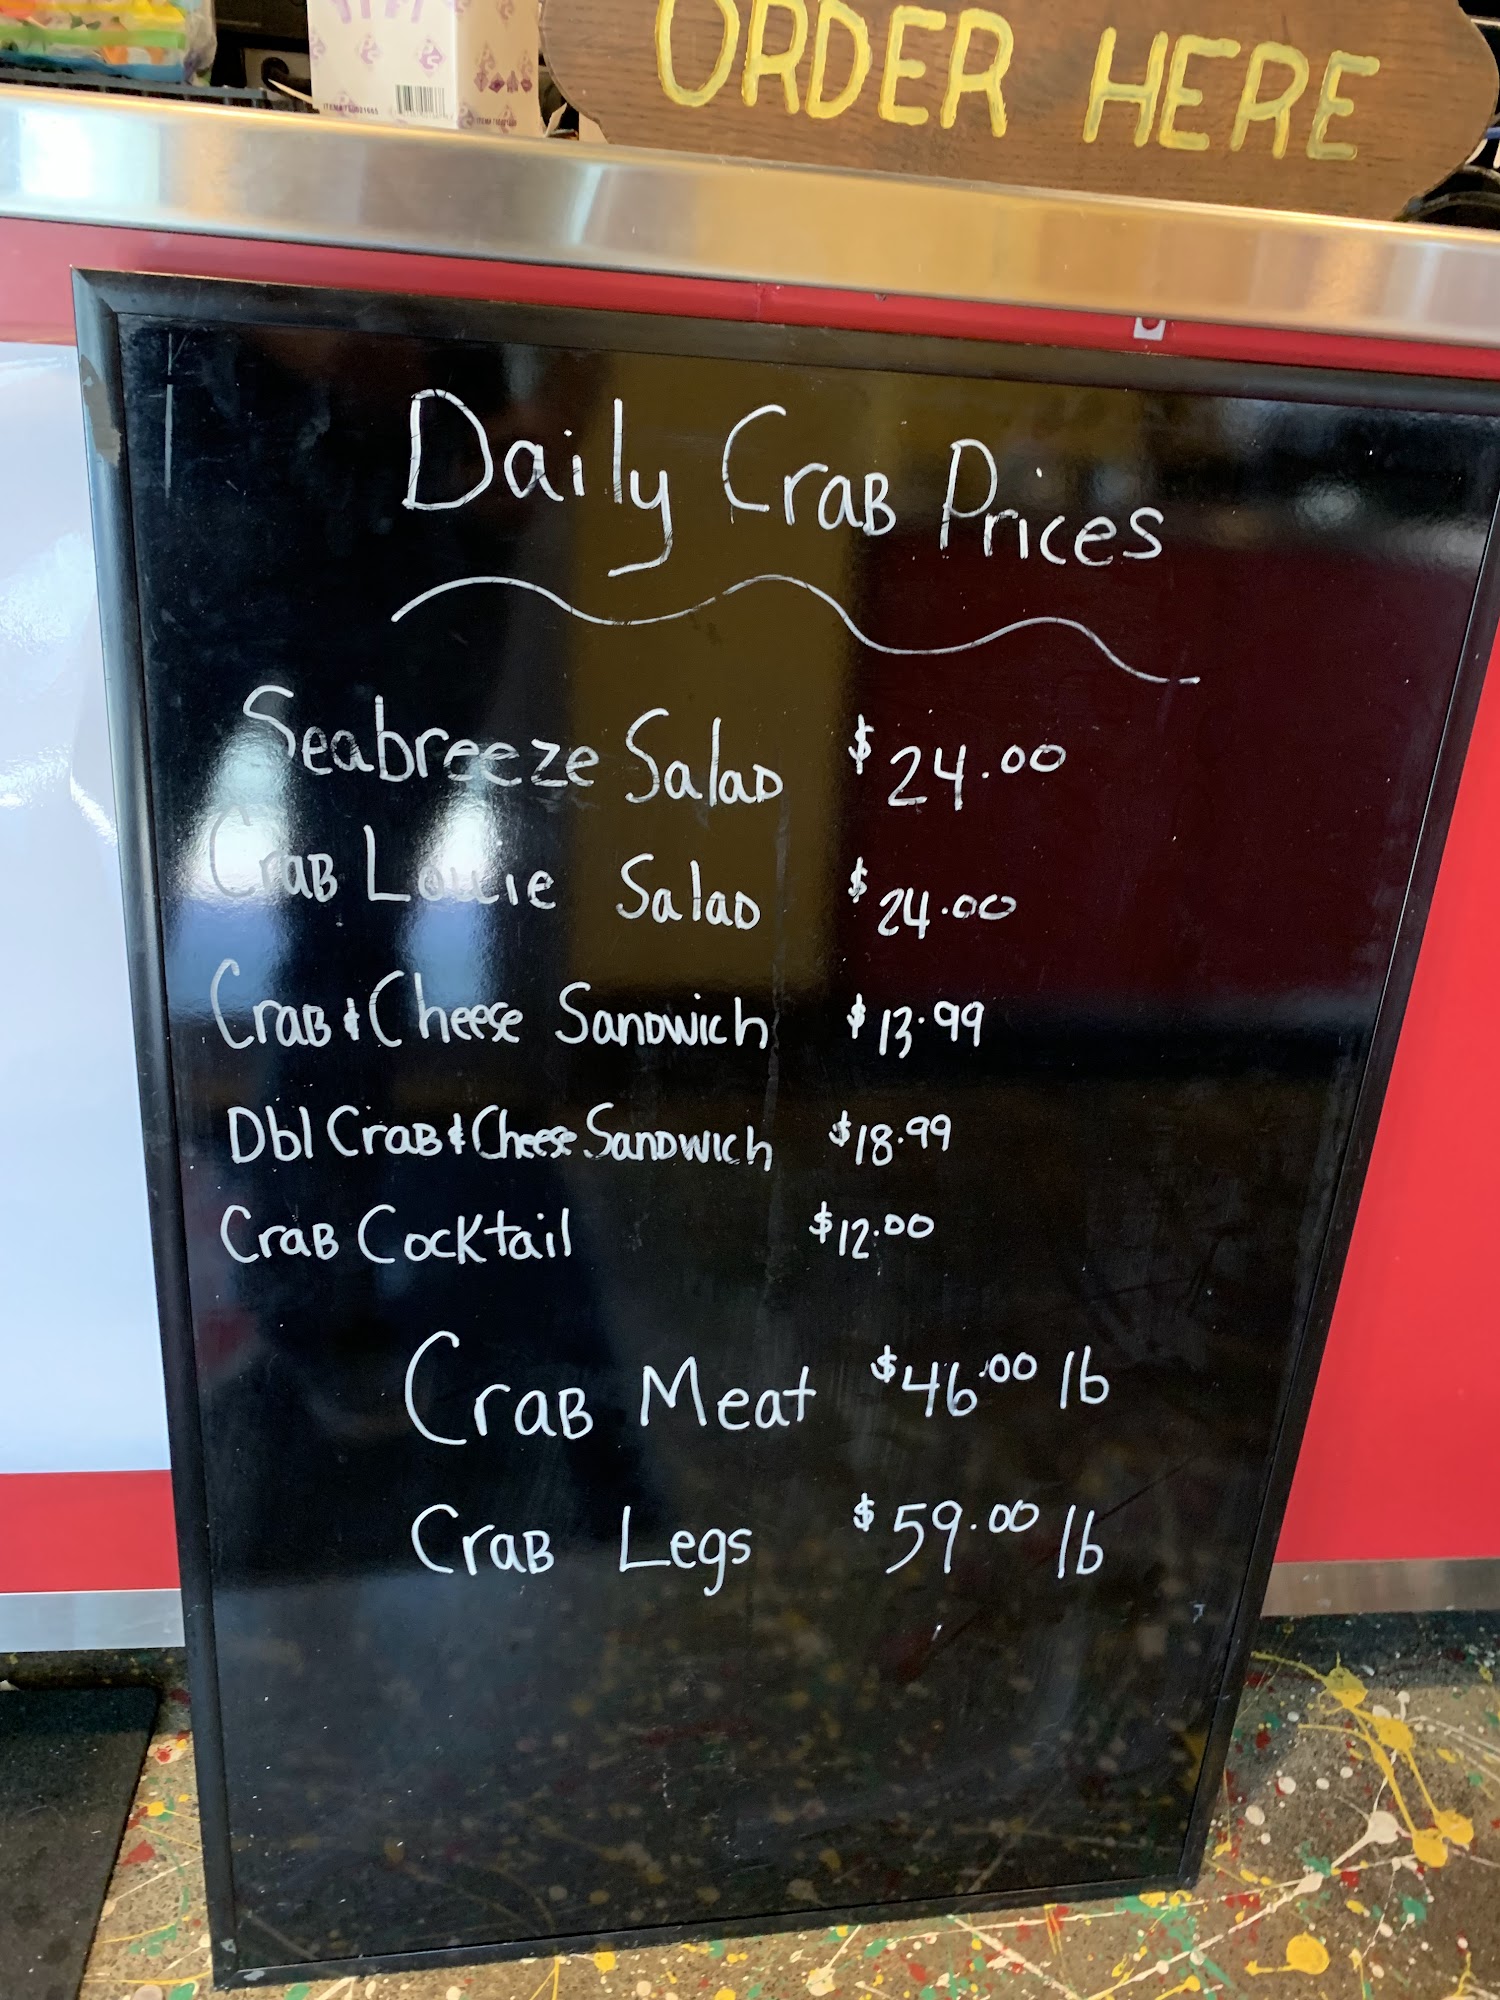 ORDER HERE
Daily Crab Prices
Seabreeze Salad $24.00
Crab Louie Salad $24.00
Crab & Cheese Sandwich $13.99
Dbl Crab & Cheese Sandwich $18.99
Crab Cocktail $12.00
Crab Meat $46.00 lb
Crab Legs $59.00 lb